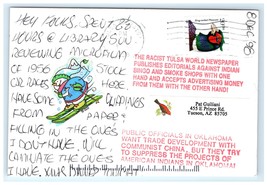 HEY FOLKS, SPENT 26
HOURS @ LIBRARY SUN.
REVIEWING MICROFILM
OF 1956 STOCK
CAR RACES. HERE
HAVE SOME CLIPPINGS
FROM PAPER
FILLING IN THE ONES
I DON'T HAVE. WILL
THE ONES
I HAVE.
8 DEC 96
THE RACIST TULSA WORLD NEWSPAPER
PUBLISHES EDITORIALS AGAINST INDIAN
BINGO AND SMOKE SHOPS WITH ONE
HAND AND ACCEPTS ADVERTISING MONEY
FROM THEM WITH THE OTHER HAND!
Pat Guiliani
455 E Prince Rd.
Tucson, AZ 85705
PUBLIC OFFICIALS IN OKLAHOMA
WANT TRADE DEVELOPMENT WITH
COMMUNIST CHINA, BUT THEY TRY
TO SUPPRESS THE PROJECTS OF
AMERICAN INDIANS IN OKLAHOMA